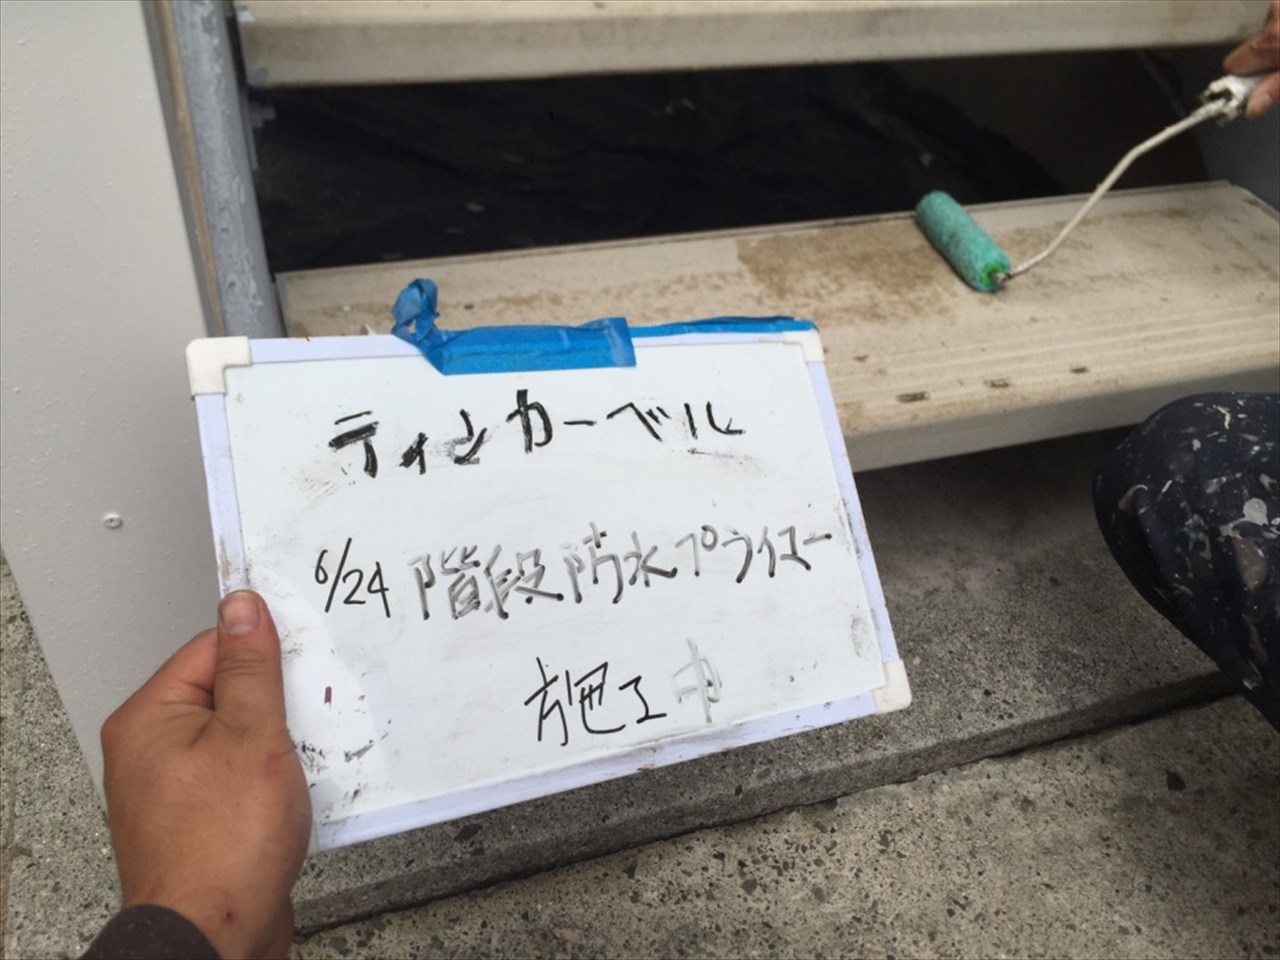 ティンカーベル
6/24 階段防水プライマー
施工中